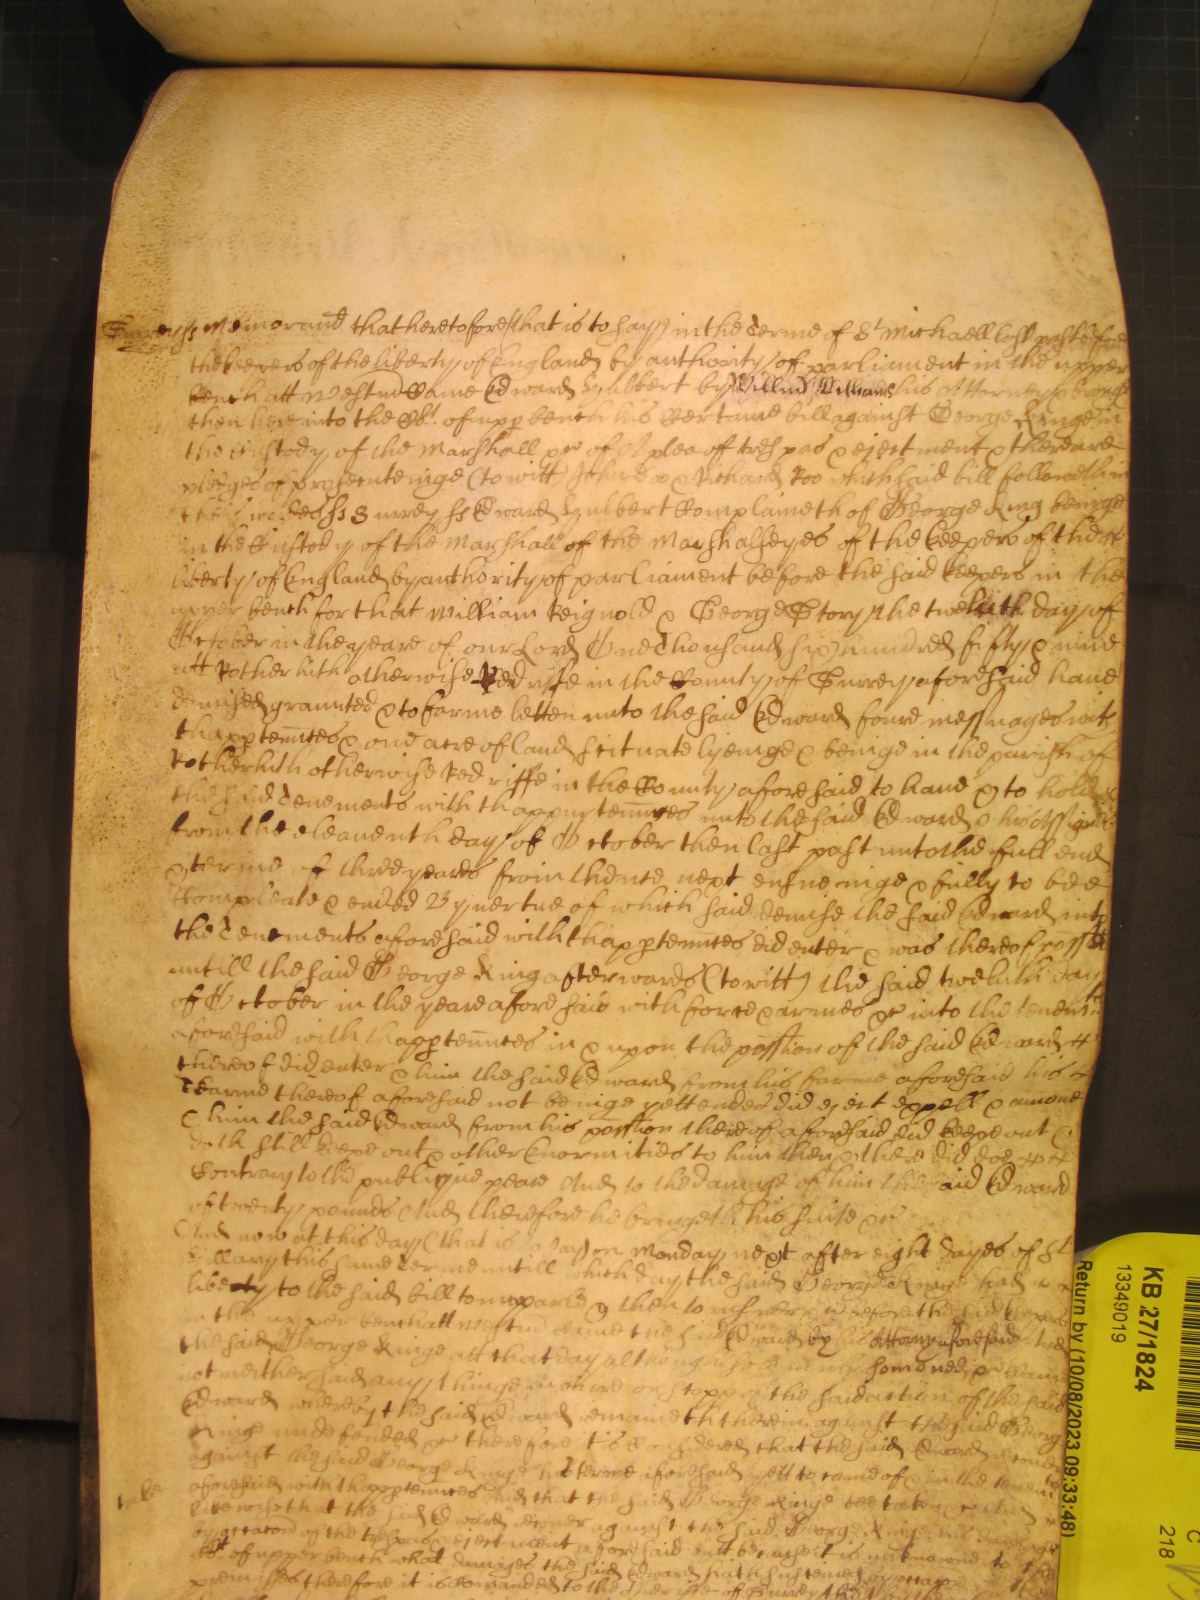 Surrey ss Memorand that heretofore that is to say in the Terme of St Michaell last past before
the keepers of the liberty of England by authority of parliament in the upper
bench att Westmr Came Edward Hulbert by Willm Williams his Atterney & brought
then here into the of upp bench his Certaine bill against George Kinge in
the Custody of the Marshall &c of A plea of trespas & ejectment & there are
pledges of prosecuteinge (to witt) John Doo & Richard Roo which said bill followeth in
ss Surrey ss Edward Hulbert Complaineth of George King beinge
in the Custody of the Marshall of the Marshalseyes of the keepers of the
liberty of England by authority of parliament before the said keepers in the
upper bench for that William Reignold & George Story the twelfth day of
October in the yeare of our Lord One Thousand six hundred fifty & nine
att Rotherhith otherwise Redriffe in the County of Surrey aforesaid have
demised graunted & to farme letten unto the said Edward foure messuages with
thappertenntes & one acre of land scituate lyeinge & beinge in the parish of
Rotherhith otherwise Redriffe in the County aforesaid to have & to hold
the said Tenements with thappurtennes unto the said Edward & his Assignes
from the eleaventh day of October then last past unto the full end
& terme of three yeares from thence next ensueinge & fully to bee
Compleate & ended By vertue of which said demise the said Edward into
the Tenements aforesaid with thappertenntes did enter & was thereof possed
untill the said George King afterwards (to witt) the said twelfth day
of October in the yeare aforesaid with force & armes &c into the tenemts
aforesaid with thappertenntes in & upon the possion of the said Edward
thereof did enter & him the said Edward from his farme aforesaid his
Tearme thereof aforesaid not beinge yett ended did eject expell & amove
& him the said Edward from his possion thereof aforesaid did keepe out &
doth still keepe out & other Enormities to him then & there did doe
Contrary to the publique peace And to the damage of him the said Edward
of twenty pounds And therefore he bringeth his suite &c
And now at this day (that is to say) on Monday next after eight dayes of St
Hillary this same Terme untill which day the said George Kinge had
liberty to the said bill to imparle & then to answere &c before the said keepers
in the upper bench att Westmr Came the said Edward by his Attorny aforesaid And
the said George Kinge att that day although solemnely somoned &c Came
not neither said any thinge in barre or stopp of the said action of the said
Edward whereby the said Edward remaineth therein against the said George
Kinge undefended &c therefore it is Considered that the said Edward recover
against the said George Kinge his terme aforesaid yett to come of & in the tenemts
aforesaid with thappertenntes And that the said George Kinge bee taken &c And
likewise that the said Edward recover against the said George Kinge his damages
by occasion of the trespas & ejectment aforesaid butt because it is unknowne to the
of upper bench what damages the said Edward hath susteined by occasion
premisses therefore it is Comanded to the Sheriffe of Surrey that by the
KB 27/1824
13349019
Return by (10/08/2023 09:33:48)
C
218